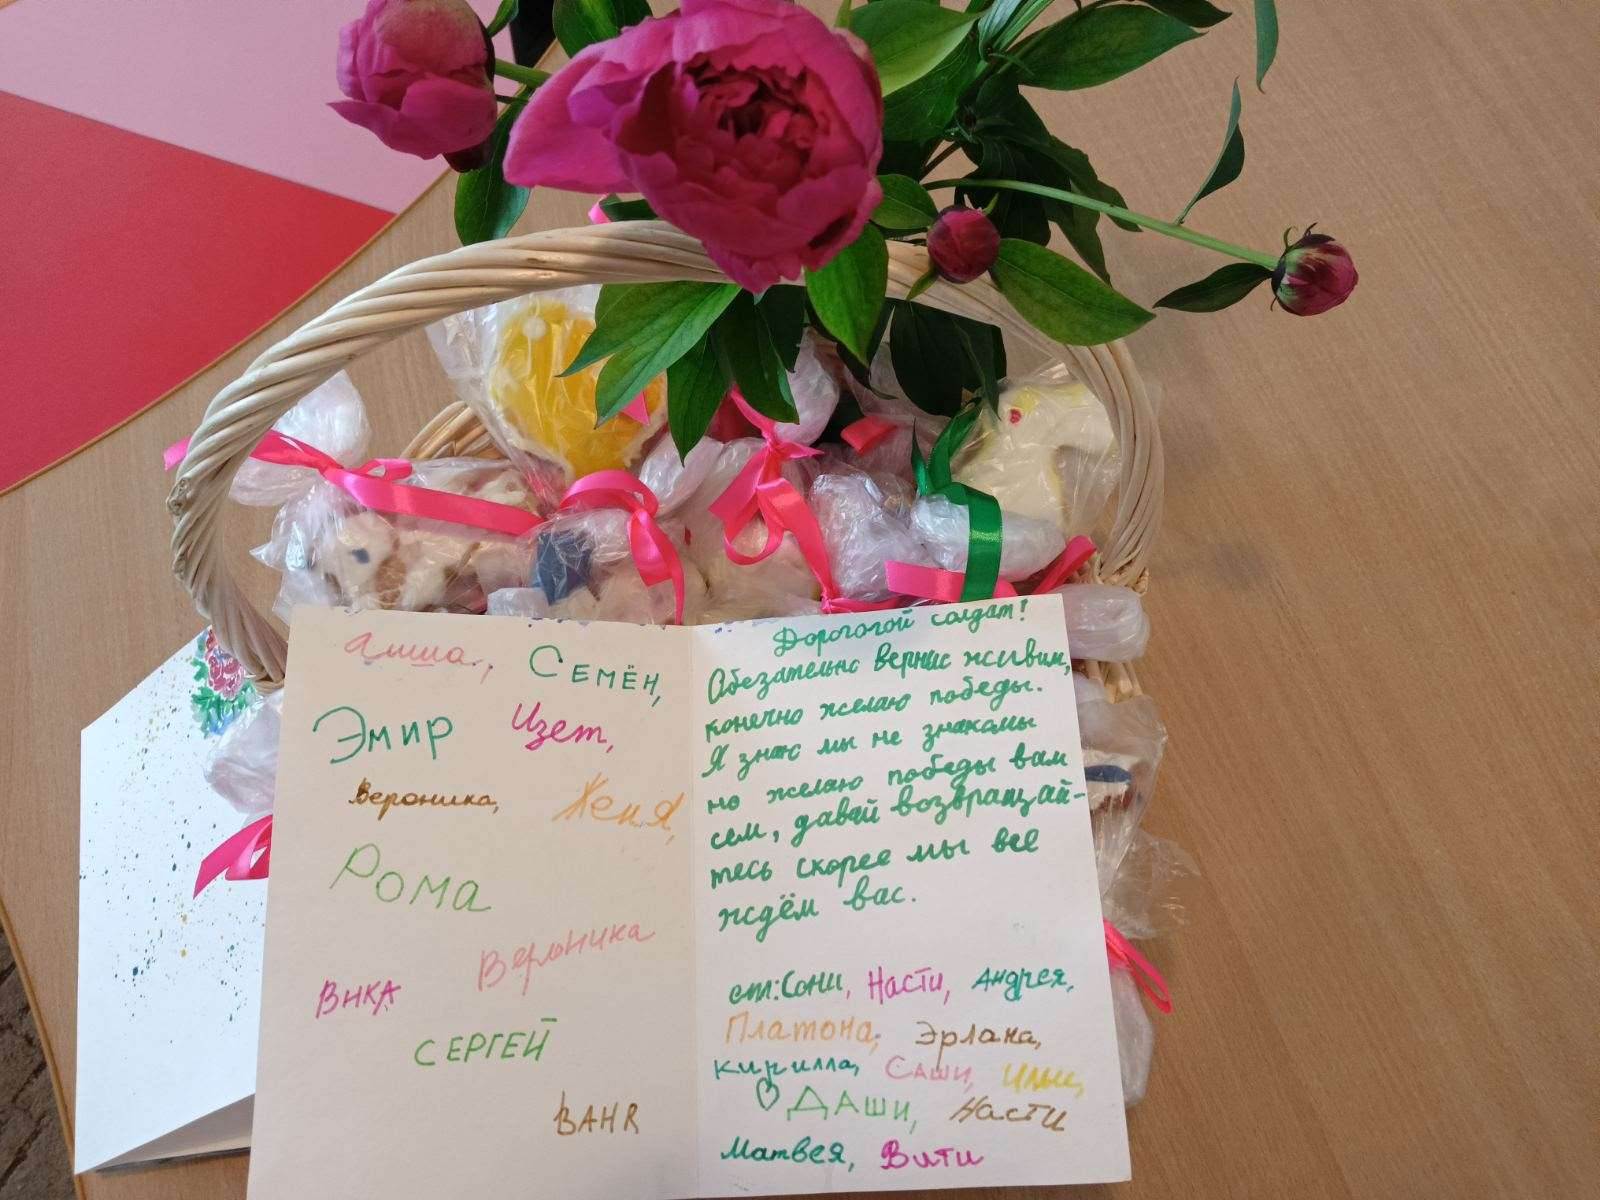 алиа,
СЕМЁН,
Эмир
Изет,
Вероника,
Женя,
Рома
Вероника
ВИКА
СЕРГЕЙ
ВАНЯ
Дорогогой солдат!
Абезательно вернис жывим,
конечно желаю победы.
Я знаю мы не знакомы
но желаю победы вам
сем, давай возвращай-
тесь скорее мы все
ждём вас.
от:Сони, Насти, Андрея,
Платона, Эрлана,
Кирилла, Саши, Ильи,
ДАШИ, Насти
Матвея, Вити